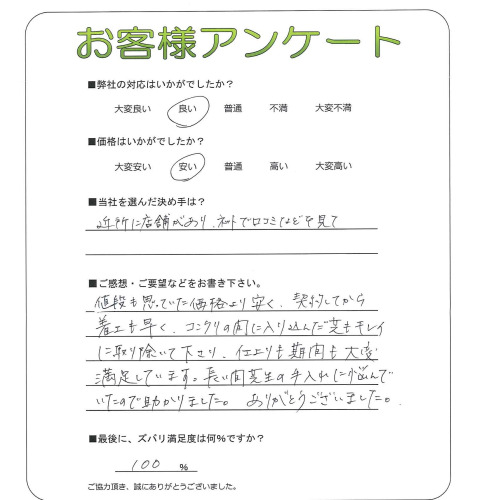 お客様アンケート
■弊社の対応はいかがでしたか？
大変良い 良い 普通 不満 大変不満
■価格はいかがでしたか？
大変安い 安い 普通 高い 大変高い
■当社を選んだ決め手は？
近所に店舗があり、ネットで口コミなどを見て
■ご感想・ご要望などをお書き下さい。
値段も思っていた価格より安く、契約してから
着工も早く、コンクリの間に入り込んだ芝もキレイ
に取り除いて下さり、仕上りも期間も大変
満足しています。長い間芝生の手入れに悩んで
いたので助かりました。ありがとうございました。
■最後に、ズバリ満足度は何%ですか？
100 %
ご協力頂き、誠にありがとうございました。